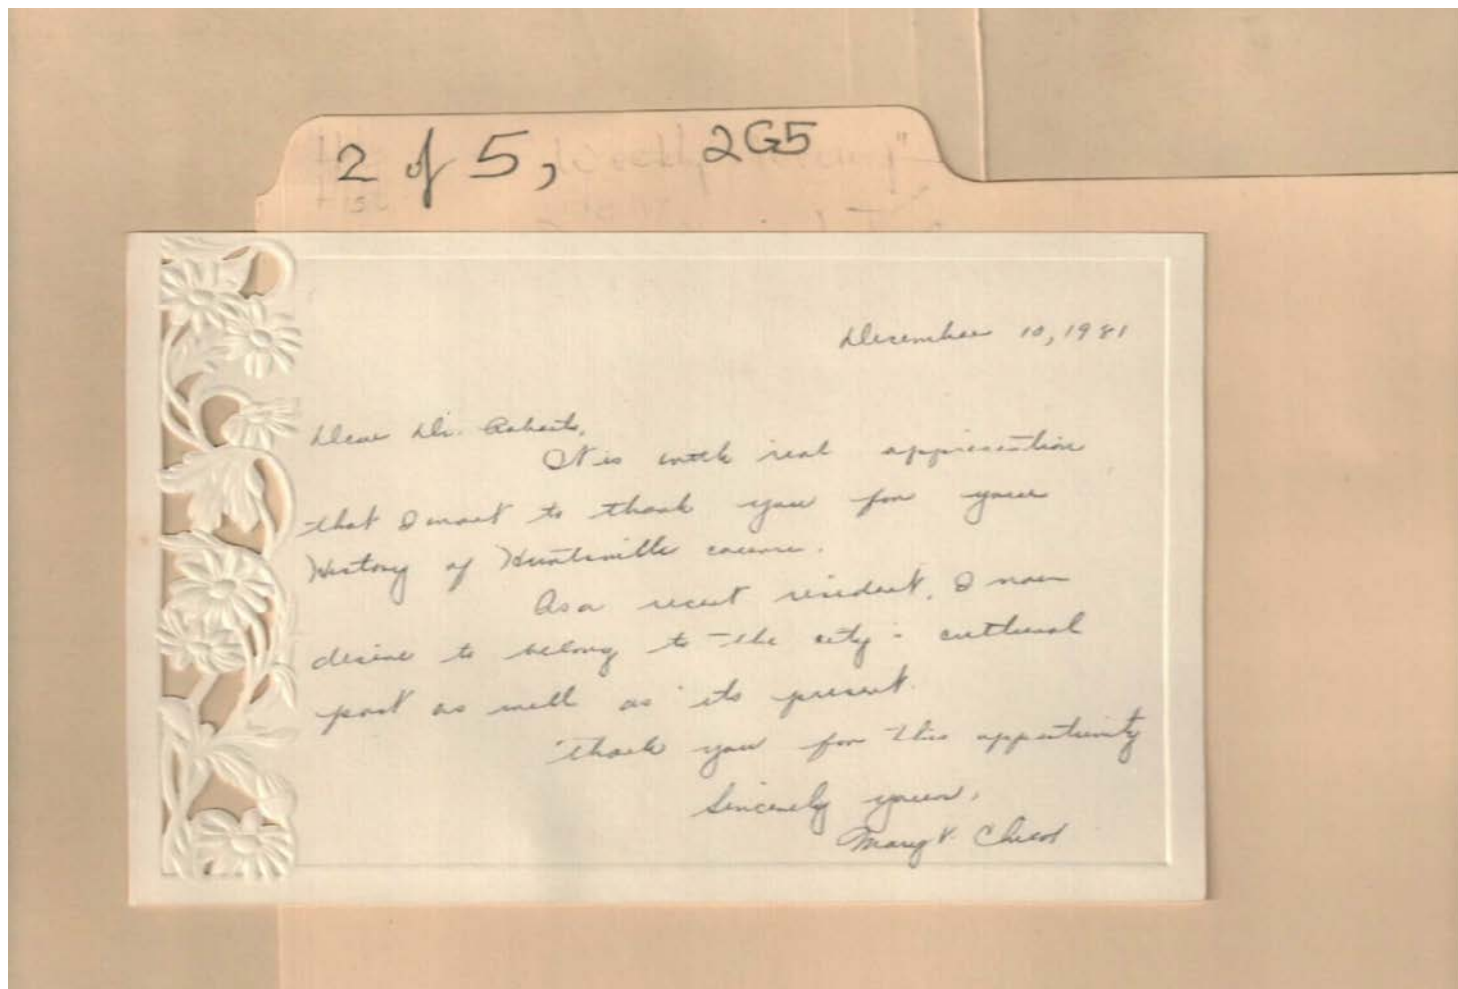 2 of 5, 2G5
December 10, 1981
Dear Dr. Roberts,
It is with real appreciation
that I want to thank you for your
History of Huntsville course.
As a recent resident, I now
desire to belong to the city's cultural
past as well as its present.
Thank you for this opportunity
Sincerely yours,
Mary V.